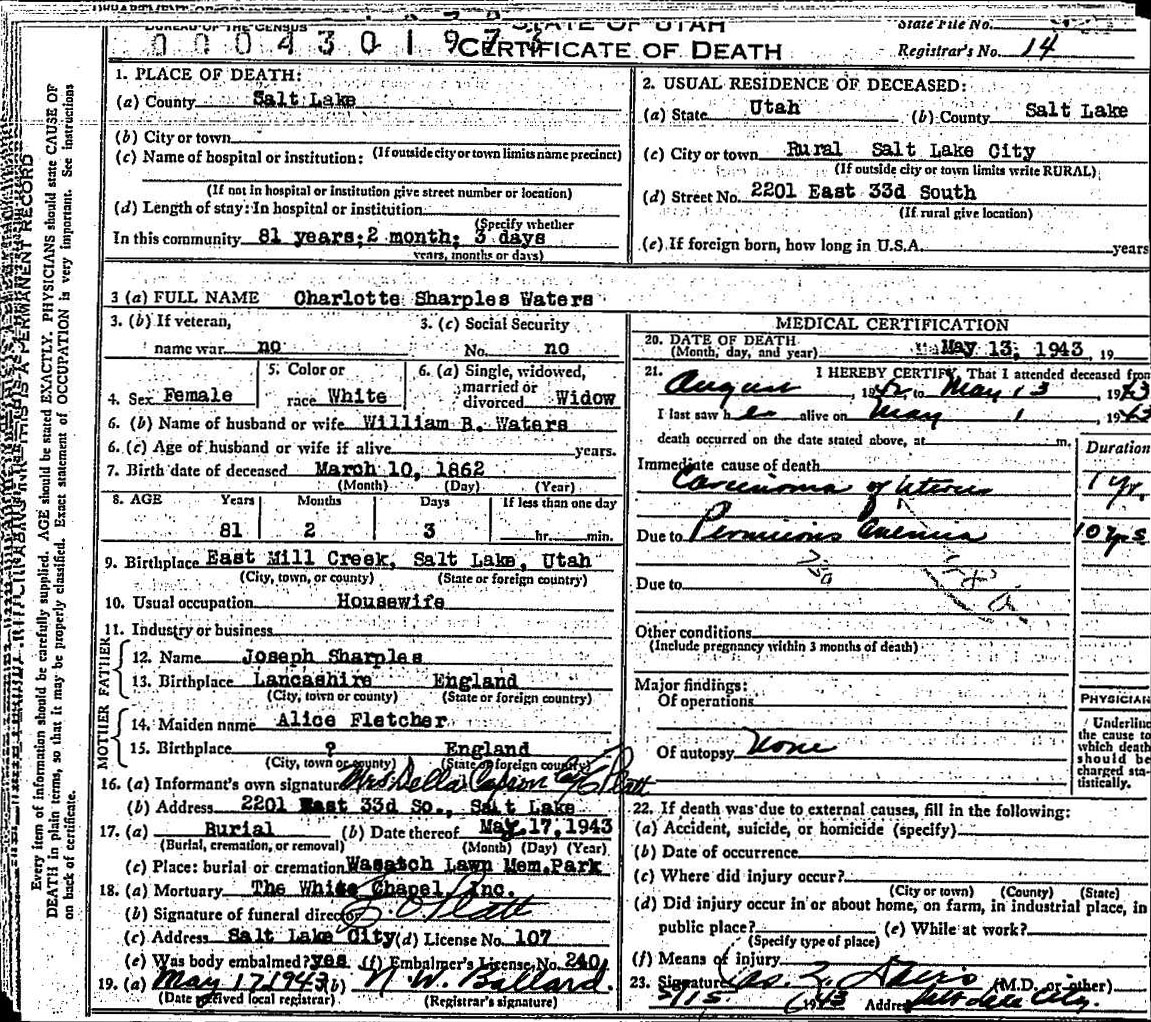 BUREAU OF THE CENSUS
STATE OF UTAH
State File No.
0 0 0 4 3 0 1 9 7
CERTIFICATE OF DEATH
Registrar's No. 14
1. PLACE OF DEATH:
(a) County Salt Lake
(b) City or town
(If outside city or town limits name precinct)
(c) Name of hospital or institution:
(If not in hospital or institution give street number or location)
(d) Length of stay: In hospital or institution
(Specify whether
In this community 81 years; 2 month; 3 days
years, months or days)
2. USUAL RESIDENCE OF DECEASED:
(a) State Utah (b) County Salt Lake
(c) City or town Rural Salt Lake City
(If outside city or town limits write RURAL)
(d) Street No. 2201 East 33d South
(If rural give location)
(e) If foreign born, how long in U.S.A. years
3 (a) FULL NAME Charlotte Sharples Waters
3. (b) If veteran,
name war no
3. (c) Social Security
No. no
4. Sex Female
5. Color or
race White
6. (a) Single, widowed,
married or
divorced Widow
6. (b) Name of husband or wife William B. Waters
6. (c) Age of husband or wife if alive years.
7. Birth date of deceased March 10, 1862
(Month) (Day) (Year)
8. AGE Years Months Days If less than one day
81 2 3 hr. min.
9. Birthplace East Mill Creek, Salt Lake, Utah
(City, town, or county) (State or foreign country)
10. Usual occupation Housewife
11. Industry or business
FATHER
12. Name Joseph Sharples
13. Birthplace Lancashire England
(City, town or county) (State or foreign country)
MOTHER
14. Maiden name Alice Fletcher
15. Birthplace ? England
(City, town or county) (State or foreign country)
16. (a) Informant's own signature Mrs Della Capson by Platt
(b) Address 2201 East 33d So., Salt Lake
17. (a) Burial (b) Date thereof May 17, 1943
(Burial, cremation, or removal) (Month) (Day) (Year)
(c) Place: burial or cremation Wasatch Lawn Mem. Park
18. (a) Mortuary The White Chapel, Inc.
(b) Signature of funeral director Platt
(c) Address Salt Lake City (d) License No. 107
(e) Was body embalmed? yes (f) Embalmer's License No. 240
19. (a) May 17 1943 (b) N. W. Ballard.
(Date received local registrar) (Registrar's signature)
MEDICAL CERTIFICATION
20. DATE OF DEATH
(Month, day, and year) May 13, 1943, 19
21. I HEREBY CERTIFY, That I attended deceased from
August, 1942, to May 13, 1943
I last saw her alive on May 1, 1943
death occurred on the date stated above, at m.
Duration
Immediate cause of death
Carcinoma of Uterus 1 yr.
Due to Pernicious Anemia 10 yrs
73a
48 a
Due to
Other conditions
(Include pregnancy within 3 months of death)
Major findings:
Of operations
Of autopsy None
PHYSICIAN
Underline
the cause to
which death
should be
charged sta-
tistically.
22. If death was due to external causes, fill in the following:
(a) Accident, suicide, or homicide (specify)
(b) Date of occurrence
(c) Where did injury occur?
(City or town) (County) (State)
(d) Did injury occur in or about home, on farm, in industrial place, in
public place? (e) While at work?
(Specify type of place)
(f) Means of injury
23. Signature (M.D. or other)
5/15 1943 Address Salt Lake City.
Every item of information should be carefully supplied. AGE should be stated EXACTLY. PHYSICIANS should state CAUSE OF
DEATH in plain terms, so that it may be properly classified. Exact statement of OCCUPATION is very important. See instructions
on back of certificate.
THIS IS A PERMANENT RECORD